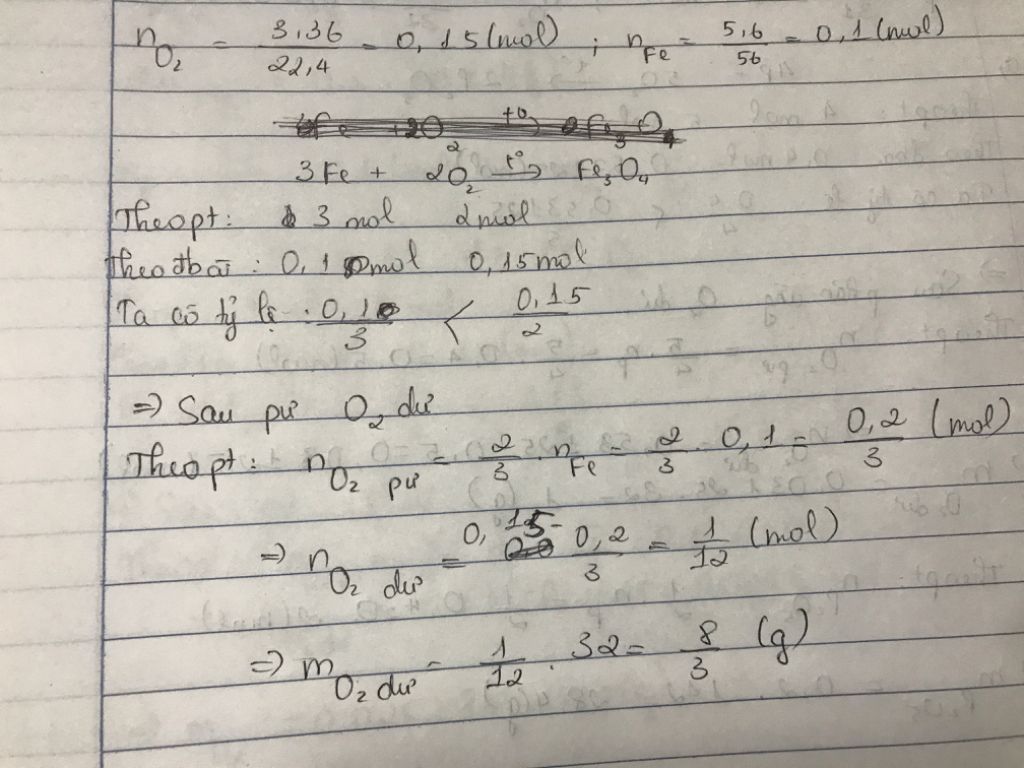 n_O₂ = 3,36/22,4 = 0,15 (mol) ; n_Fe = 5,6/56 = 0,1 (mol)
3Fe + 2O₂ t°→ Fe₃O₄
Theo pt: 3 mol 2 mol
Theo đbài : 0,1 mol 0,15 mol
Ta có tỷ lệ : 0,1/3 < 0,15/2
=> Sau pư O₂ dư
Theo pt: n_O₂ pư = 2/3 . n_Fe = 2/3 . 0,1 = 0,2/3 (mol)
=> n_O₂ dư = 0,15 - 0,2/3 = 1/12 (mol)
=> m_O₂ dư = 1/12 . 32 = 8/3 (g)